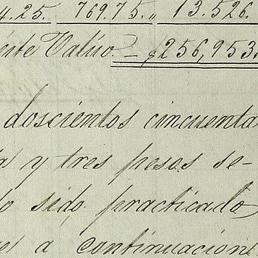 4.25. 769.75. " 13.526.
este Valúo - $256,953.
doscientos cincuenta
y tres pesos se-
sido practicado
a continuacion